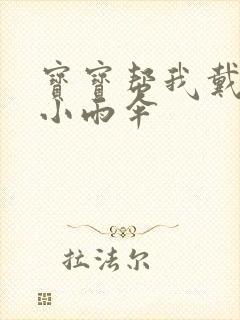 寶寶帮我戴
小雨伞
拉法尔